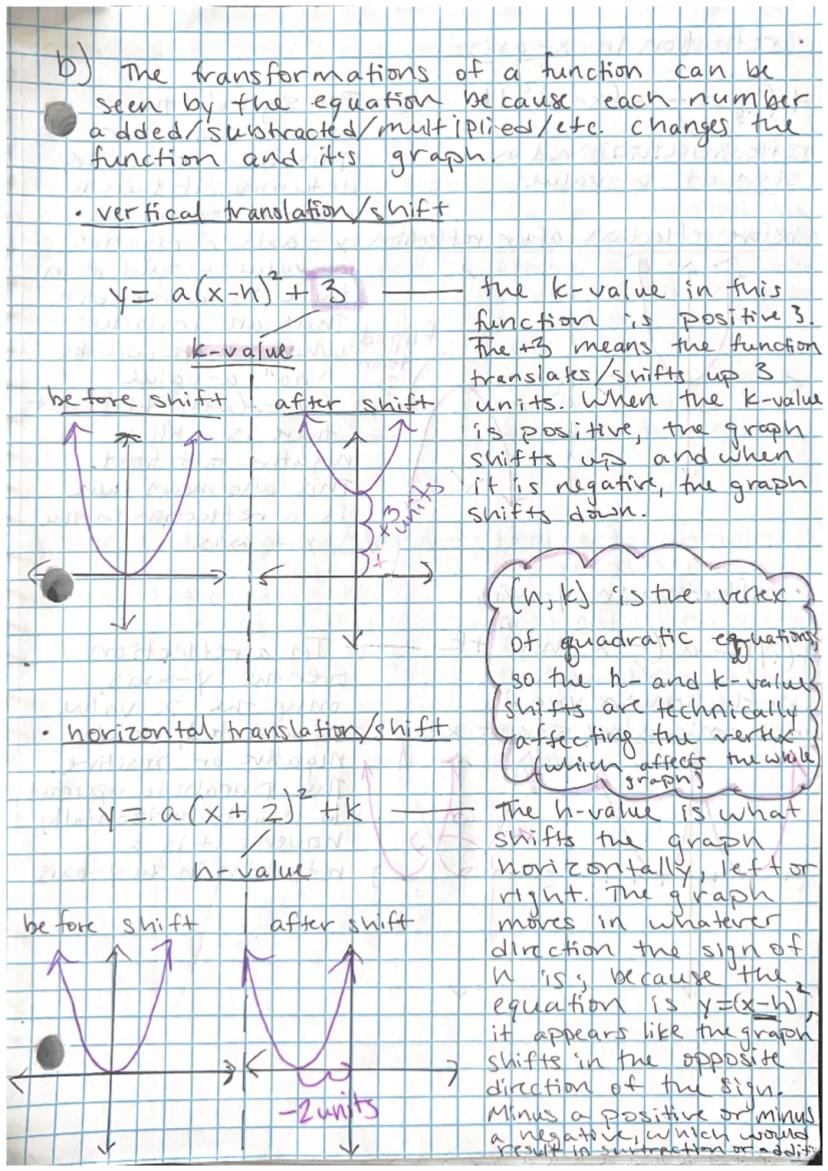 b) The transformations of a function can be
seen by the equation because each number
added/subtracted/multiplied/etc. changes the
function and it's graph.
• vertical translation/shift
y= a(x-h)²+ 3
k-value
the k-value in this
function is positive 3.
The +3 means the function
translates/shifts up 3
units. When the k-value
is positive, the graph
shifts up and when
it is negative, the graph
shifts down.
before shift
after shift
+3
units
(h, k) is the vertex
of quadratic equations,
so the h- and k-value
shifts are technically
affecting the vertex
(which affects the whole
graph)
• horizontal translation/shift
y= a(x+ 2)² +k
h-value
The h-value is what
shifts the graph
horizontally, left or
right. The graph
moves in whatever
direction the sign of
h is; because the
equation is y=(x-h)²,
it appears like the graph
shifts in the opposite
direction of the sign.
Minus a positive or minus
a negative, which would
result in subtraction or additi
before shift
after shift
-2units